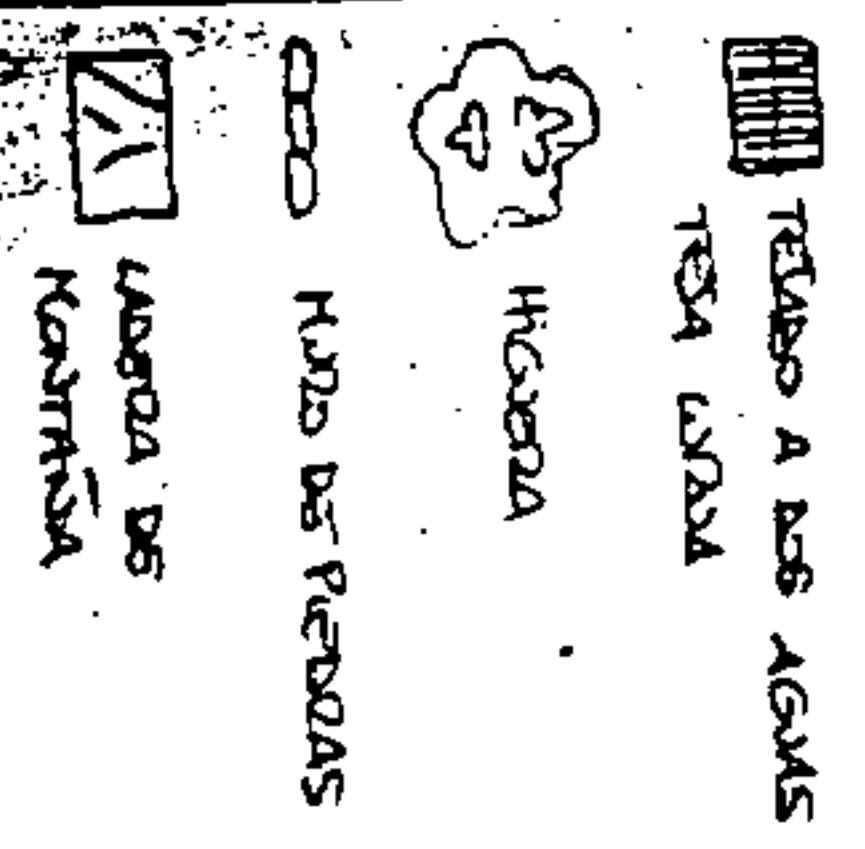 TEJADO A DOS AGUAS
TEJA CURVA
HiGUERA
MURO DE PIEDRAS
LADERA DE
MONTAÑA